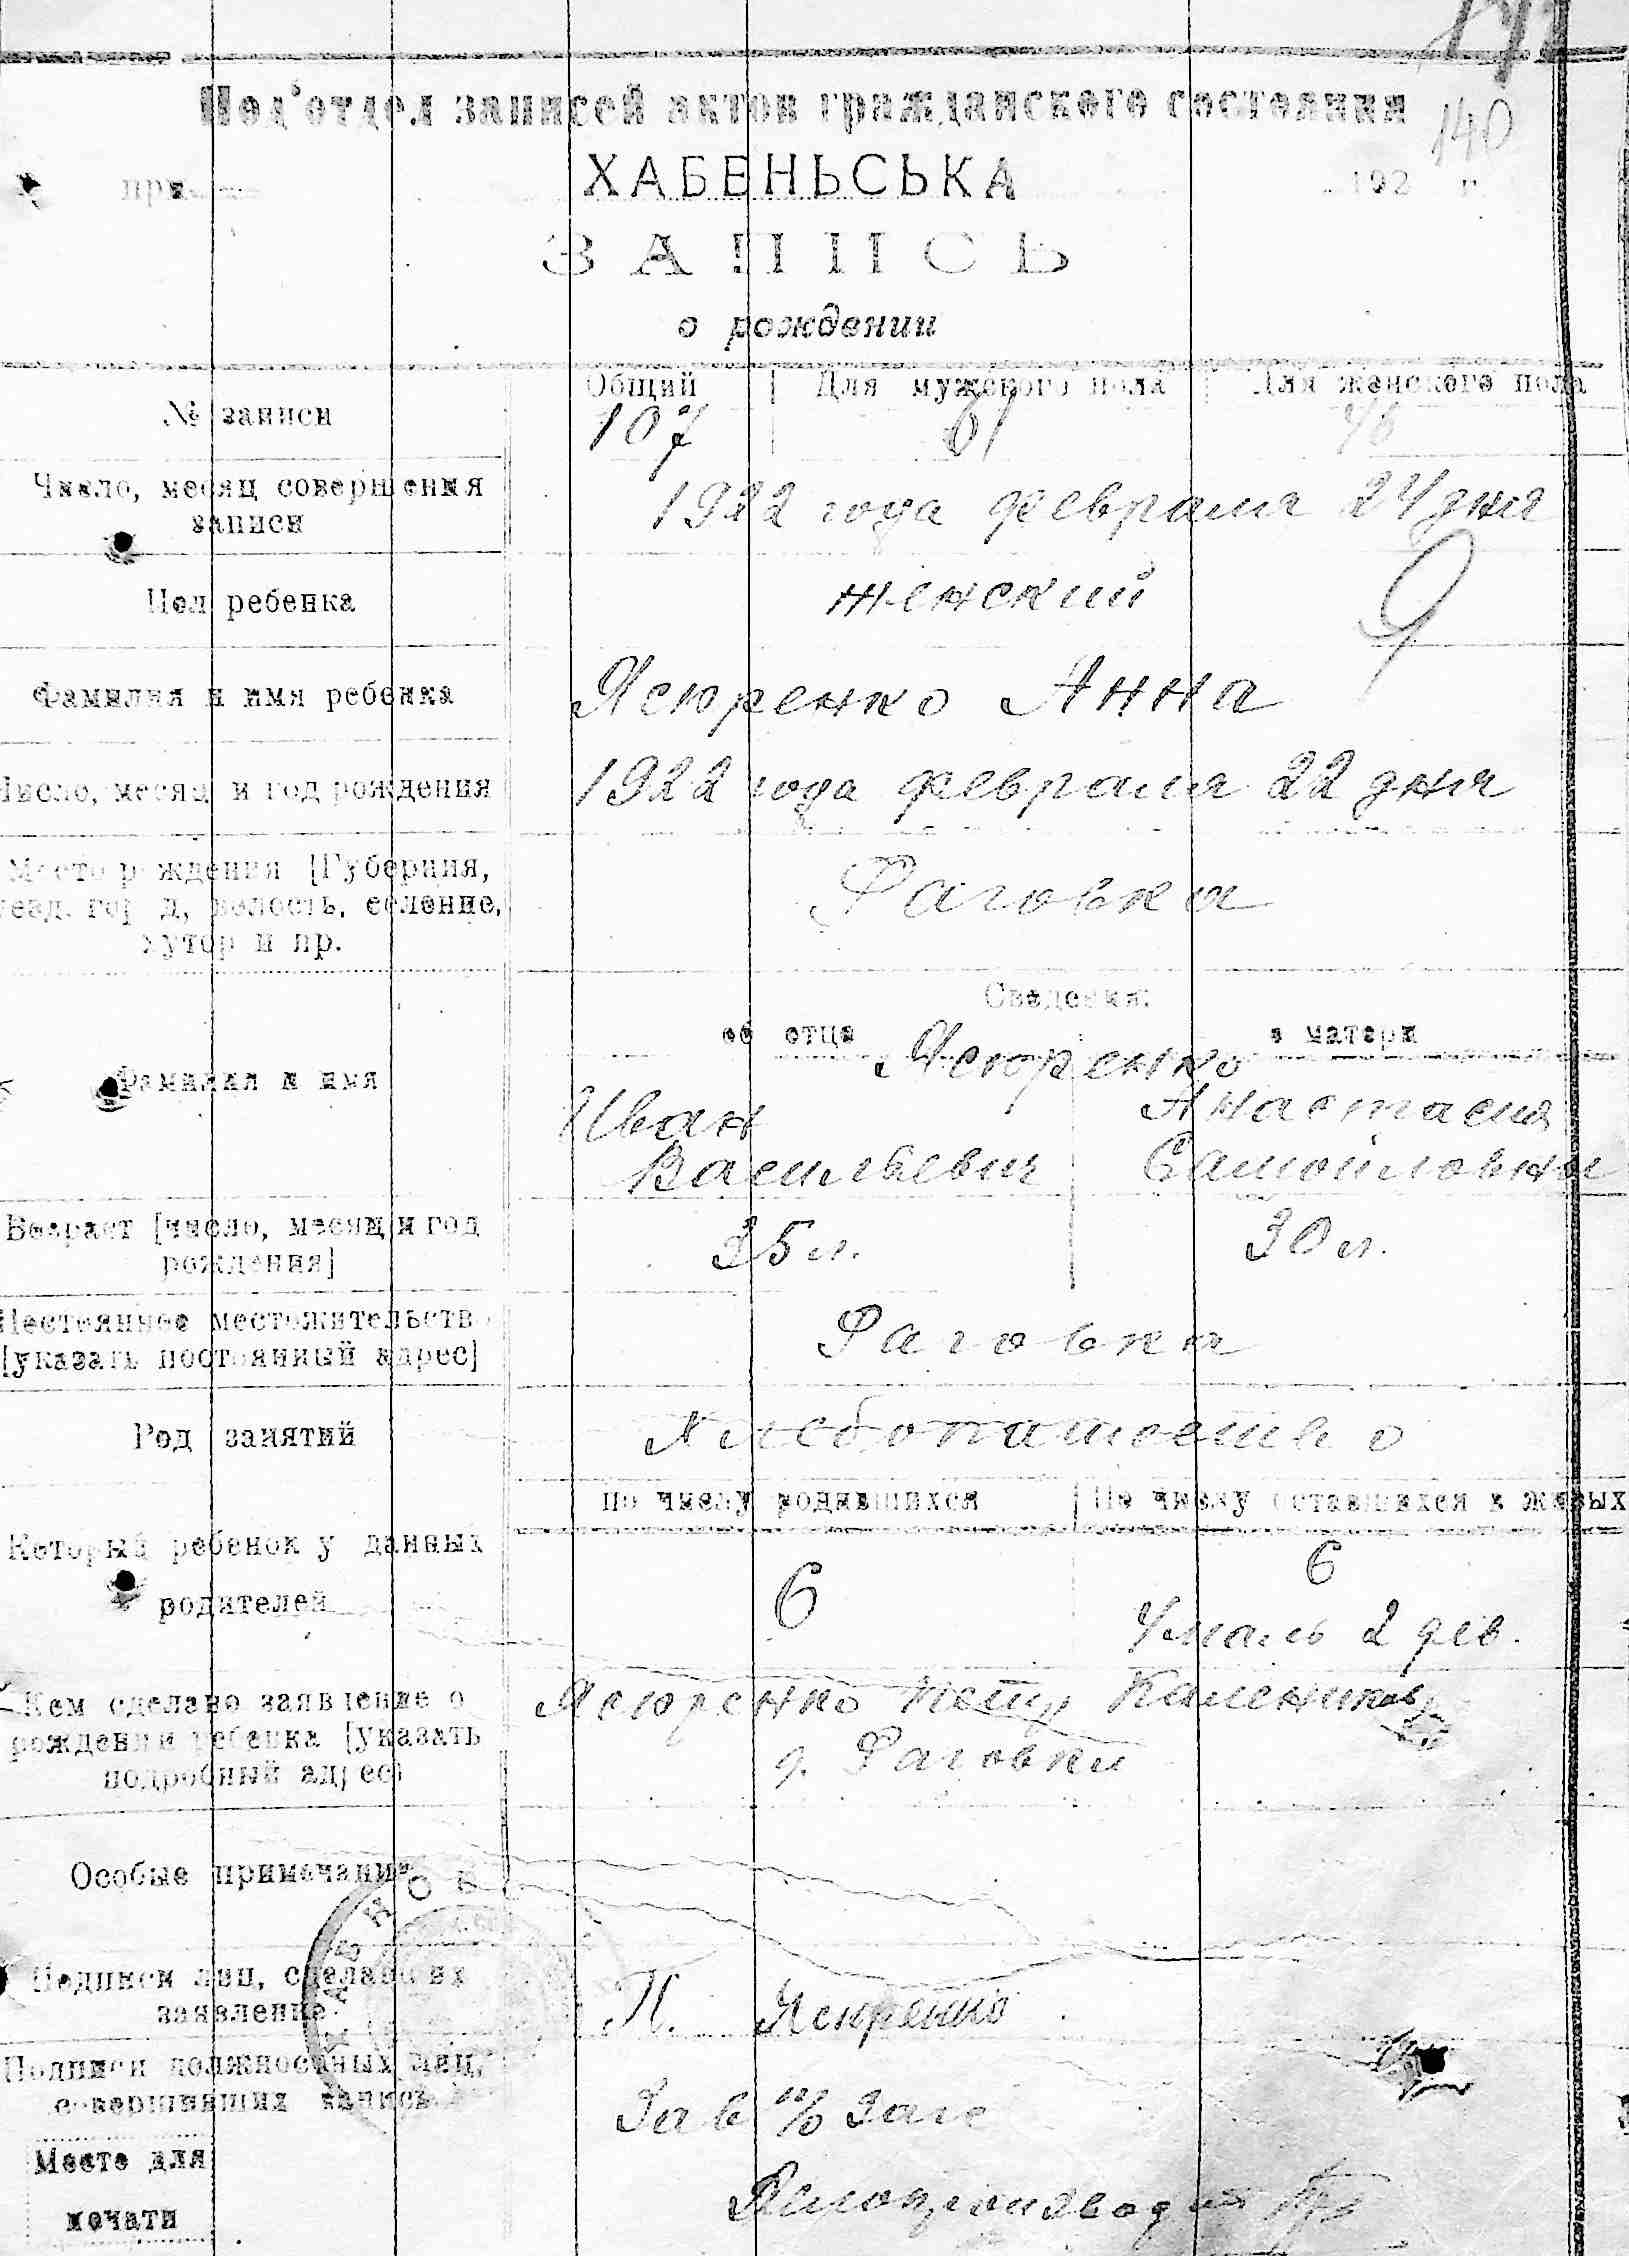 Под'отдел записей актов гражданского состояния
140
при
ХАБЕНЬСЬКА
192 г.
ЗАПИСЬ
о рождении
№ записи
Общий
Для мужского пола
Для женского пола
107
61
46
Число, месяц совершения
записи
1922 года февраля 24 дня
Пол ребенка
женский
Фамилия и имя ребенка
Ясюренко Анна
Число, месяц и год рождения
1922 года февраля 22 дня
Место рождения [Губерния,
уезд, город, волость, селение,
хутор и пр.
Раговка
Сведения:
об отце
о матери
Фамилия и имя
Ясюренко
Иван
Анастасия
Васильевич
Самойловны
Возраст [число, месяц и год
рождения]
35 л.
30 л.
Постоянное местожительство
[указать постоянный адрес]
Раговка
Род занятий
Хлебопашество
По числу родившихся
По числу оставшихся в живых
Который ребенок у данных
родителей
6
6
2 дев.
Кем сделано заявление о
рождении ребенка [указать
подробный адрес]
Ясюренко Петр
д. Раговки
Особые примечания
Подписи лиц, сделавших
заявление
П. Ясюренко
Подписи должностных лиц,
совершивших запись
Зав п/о Загс
Место для
печати
Делопроизвод